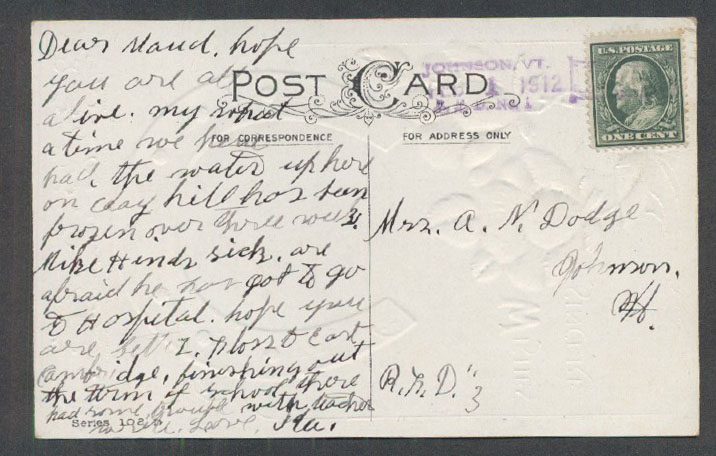 Dear Maud. hope
you are all
alive. my what
a time we have
had, the water up here
on clay hill has been
frozen over three weeks.
Mike Hinds sick. are
afraid he has got to go
to Hospital. hope you
are better
East
Cambridge, finishing out
the term of school there
had some trouble with teacher
Love, Ila.
Series 102
POST CARD
FOR CORRESPONDENCE
FOR ADDRESS ONLY
JOHNSON, VT.
1 1912
U.S. POSTAGE
ONE CENT
Mrs. A. N. Dodge
Johnson.
Vt.
R.F.D." 3